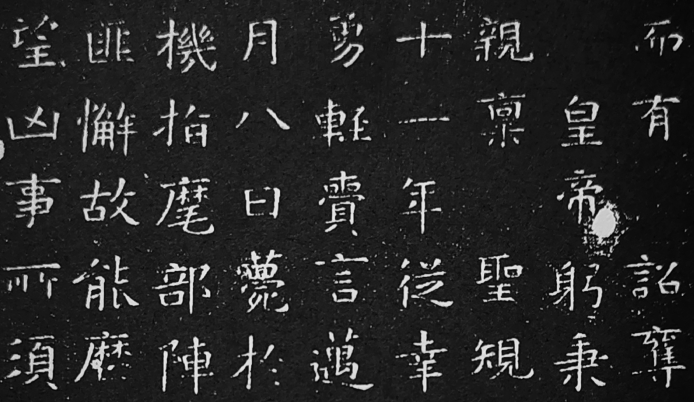 而有　詔奪
皇帝躬秉
親稟　聖規
十一年從幸
勇輕賣言邁
月八日薨於
機指麾部陣
匪懈故能
望凶事所須